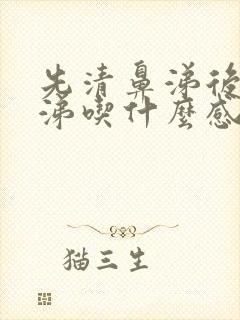 先清鼻涕後
涕喫什麼感
猫三生